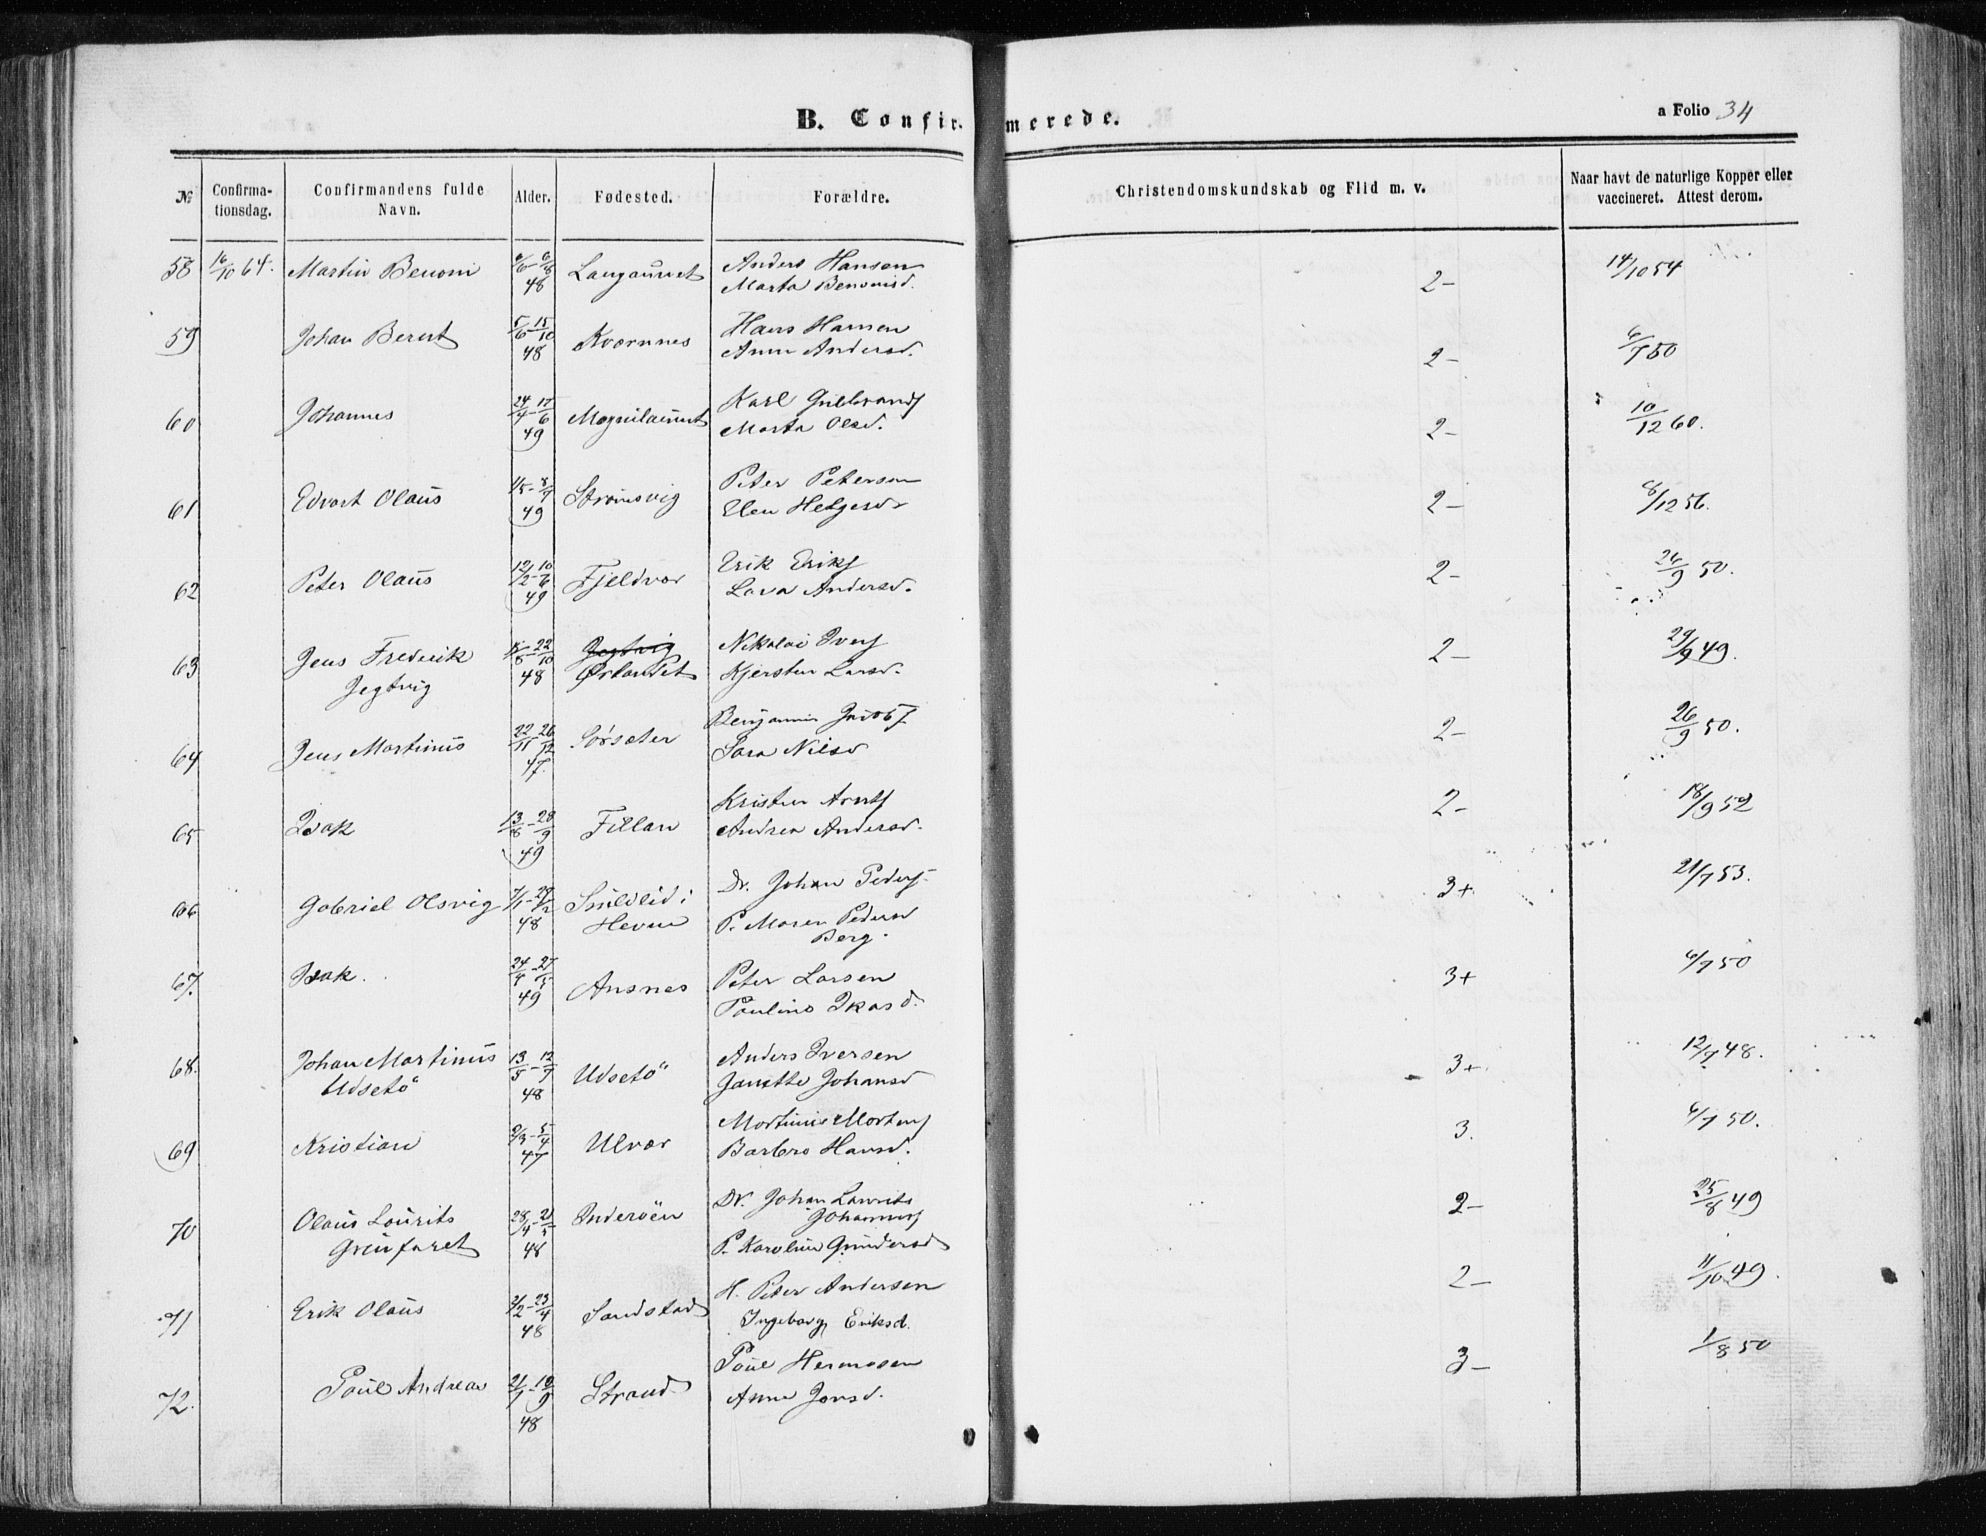 B. Confirmerede.
a Folio 34
№ Confirma-tionsdag. Confirmandens fulde Navn. Alder. Fødested. Forældre. Christendomskundskab og Flid m. v. Naar havt de naturlige Kopper eller vaccineret. Attest derom.
58 16/10 64. Martin Benoni 48 Anders Hansen 2- 14/10 54
Marta Benonisd.
59 Johan Bernt 5/6-15/10 48 Kværnnes Hans Hansen 2- 6/7 50
Anne Andersd.
60 Johannes 24/4-17/6 49 Karl 2- 10/12 60.
Marta Olsd.
61 Edvart Olaus 1/5-8/7 49 Strømsvig Peter Petersen 2- 8/12 56.
Elen Helgesd
62 Peter Olaus 12/2-10/6 49 Fjeldvær Erik Eriks 2- 26/9 50.
Lava Andersd.
63 Jens Frederik 22/10 48 Jegtvig Nikolai Ivers 2- 29/9 49.
Jegtvig Ørlandet Kjersten Larsd.
64 Jens Martinus 22/11-26/12 47. Sørsæter Benjamin Jacobs 2- 26/9 50.
Sara Nilsd
65 Isak 13/8-28/9 49 Fillan Kristen Arnts 2- 18/9 52
Andrea Andersd.
66 Gabriel Olsvig 7/1 48 i Dr. Johan Peders. 3+ 21/7 53.
Hevne P. Maren Pedersd
Berg.
67. Isak. 24/4-27/5 49 Ansnes Peter Larsen 3+ 6/7 50
Pauline
68. Johan Martinus 13/5-12/9 48 Udsetö Anders Iversen 3+ 12/9 48.
Udsetö Janette Johansd
69 Kristian 2/3-5/4 47 Ulvær Martinus Mortens 3. 6/7 50.
Barbro Hansd.
70 Olaus Lourits 28/4-21/5 48 Inderöen Dr. Johan Laurits 2- 25/8 49
Johannes
P. Karoline Gundersd
71 Erik Olaus 2/2-23/4 48 Sandstad H. Peter Andersen 2- 11/10 49.
Ingeborg Eriksd.
72. Poul Andreas 21/7-10/9 48 Strand Poul Hermosen 3- 1/8 50
Anne Jonsd.